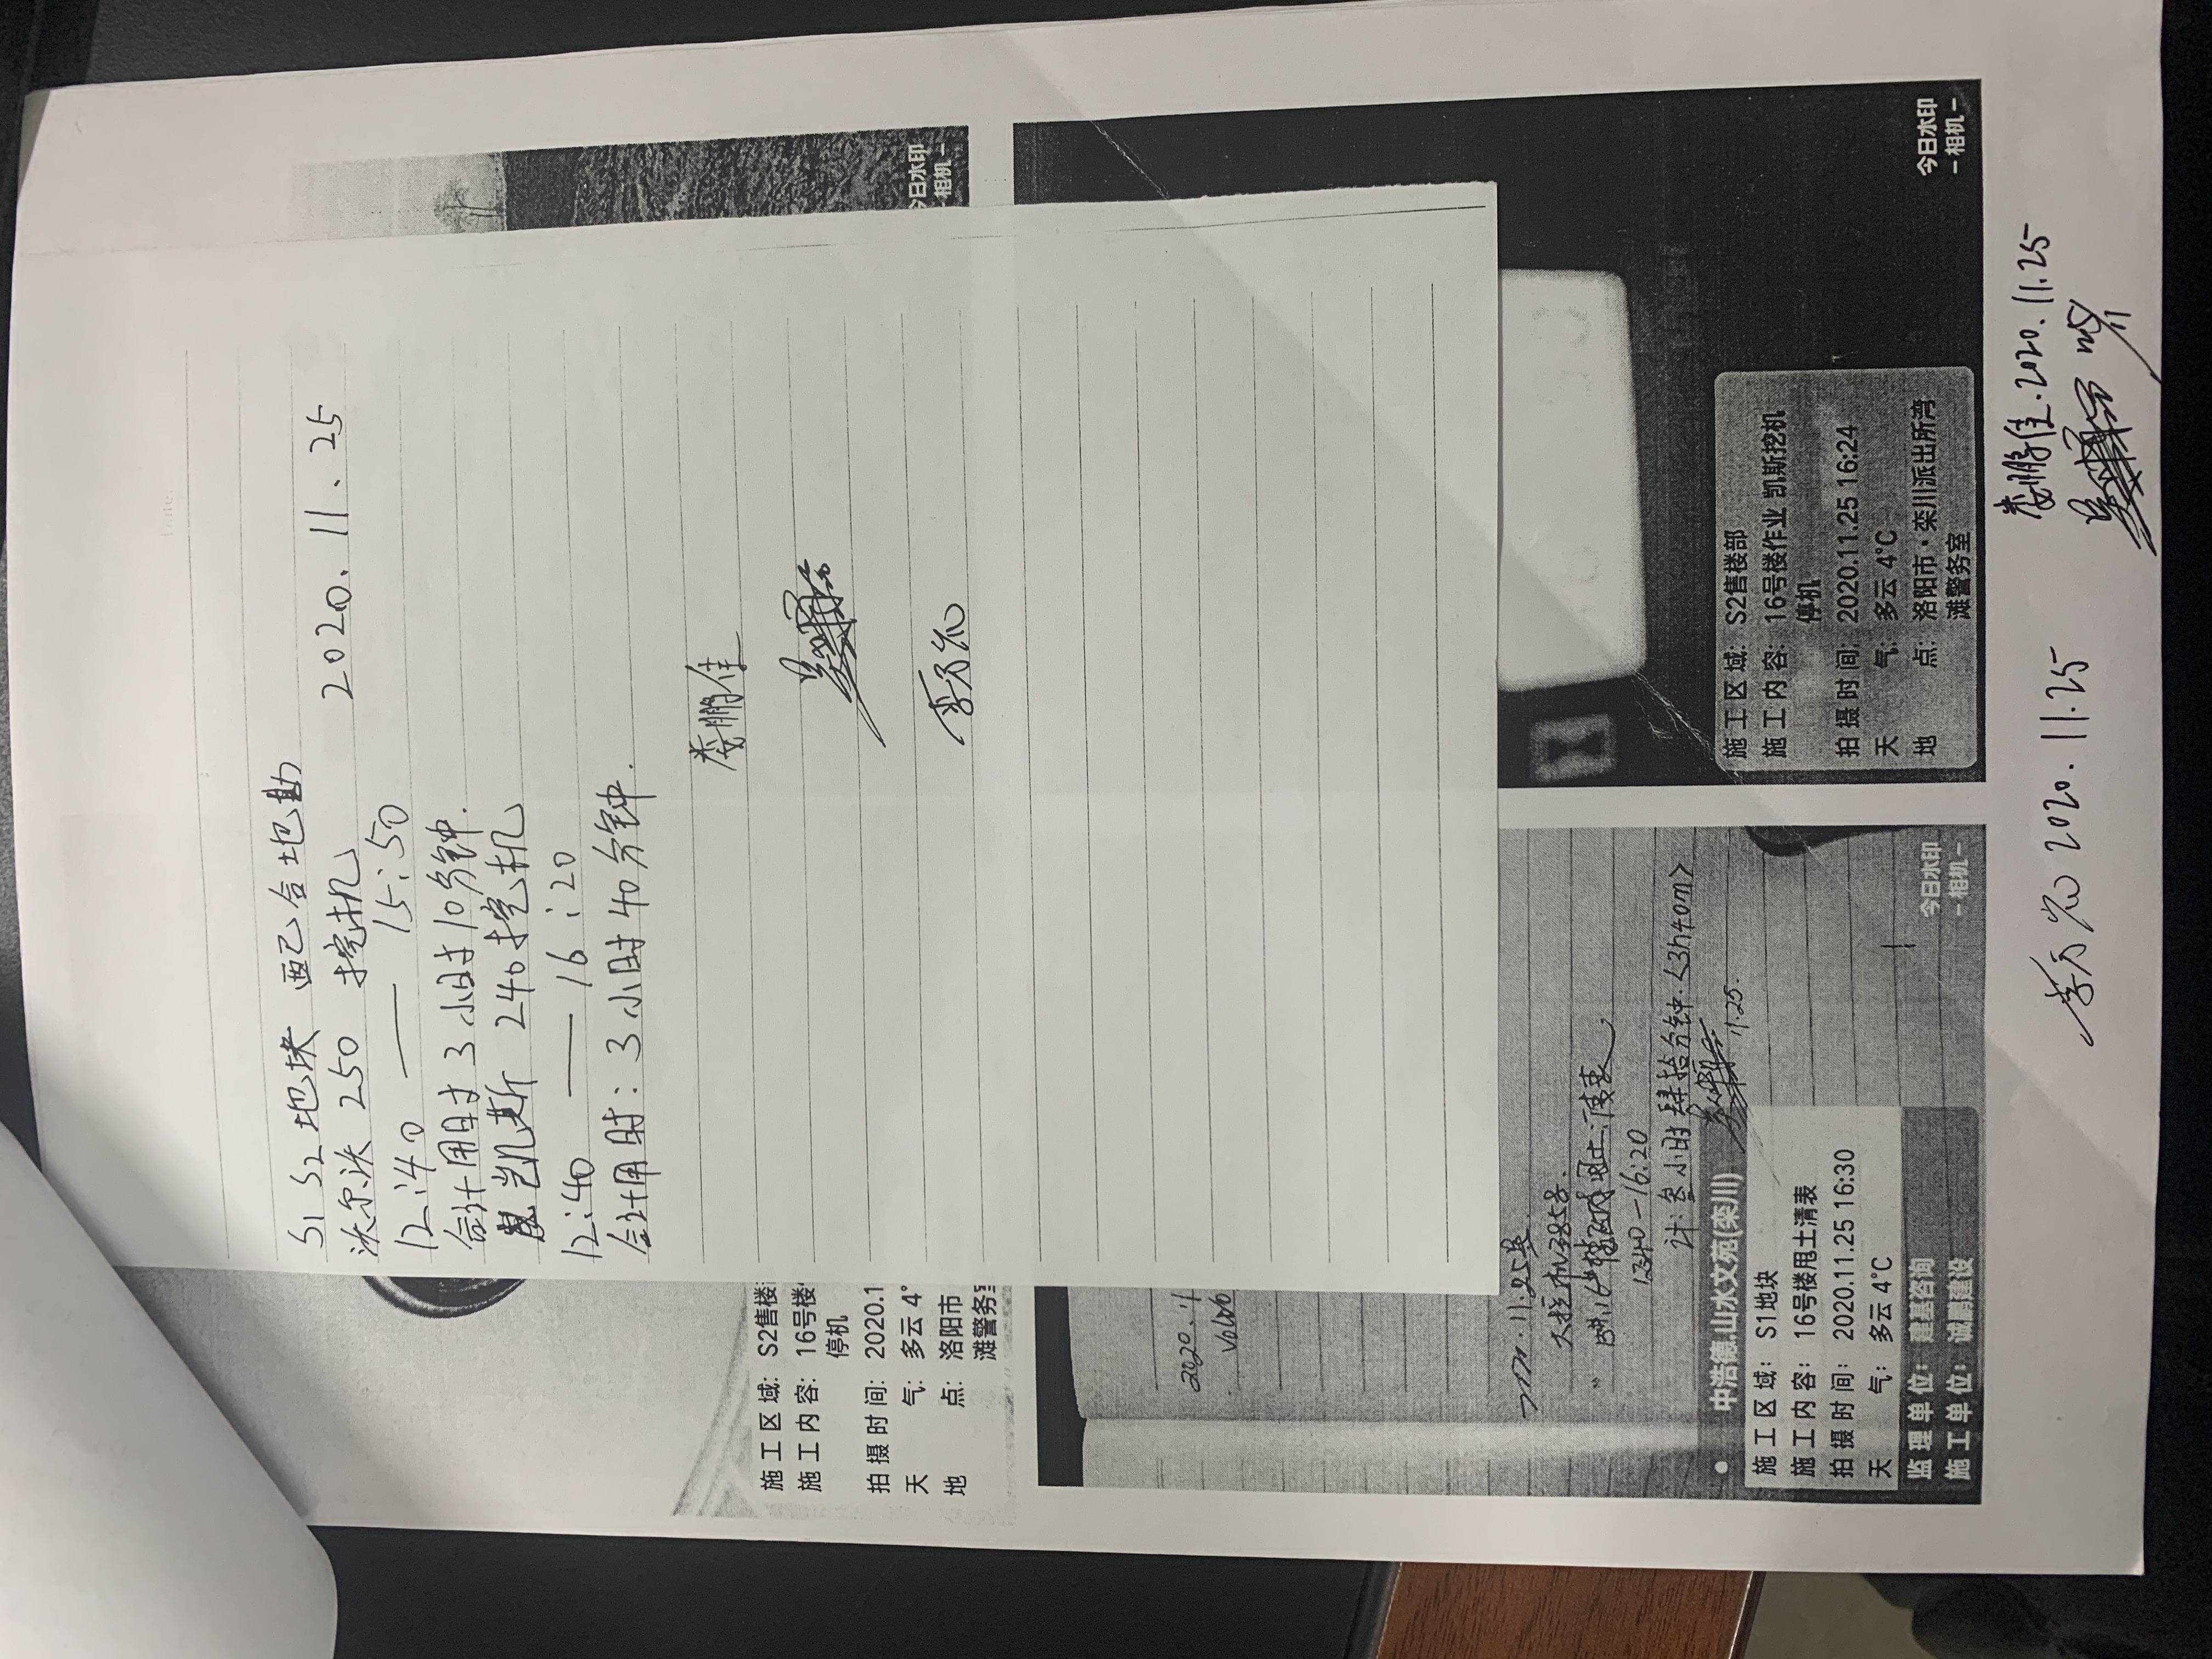 S1 S2地块 配合地勘
2020.11.25
沃尔沃 250 挖机
12:40 —— 15:50
合计用时 3小时10分钟.
凯斯 240挖机
12:40 —— 16:20
合计用时: 3小时40分钟.
娄鹏佳
今日水印
相机-
施工区域: S2售楼
施工内容: 16号楼
停机
拍摄时间: 2020.1
天 气: 多云 4°
地 点: 洛阳市
滩警务
2020.11
Volvo
11.25
大挖机
12:40-16:20
计: 叁小时肆拾分钟.<3h40m>
11.25.
中浩德.山水文苑(栾川)
施工区域: S1地块
施工内容: 16号楼甩土清表
拍摄时间: 2020.11.25 16:30
天 气: 多云 4°C
监理单位: 建基咨询
施工单位: 诚鹏建设
今日水印
-相机-
施工区域: S2售楼部
施工内容: 16号楼作业 凯斯挖机
停机
拍摄时间: 2020.11.25 16:24
天 气: 多云 4°C
地 点: 洛阳市·栾川派出所湾
滩警务室
今日水印
-相机-
2020.11.25
娄鹏佳.2020.11.25